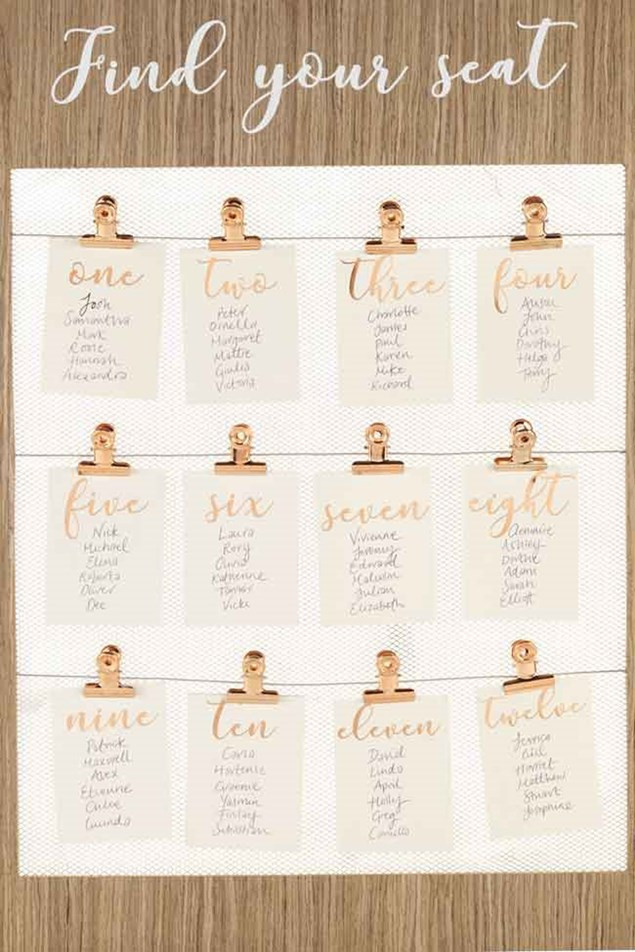 Find your seat
one
Josh
Samantha
Mark
Rosie
Hannah
Alexandra
two
Peter
Ornella
Margaret
Mattie
Giulia
Victoria
three
Charlotte
James
Paul
Karen
Mike
Richard
four
John
Chris
Dorothy
Helga
Terry
five
Nick
Michael
Elena
Roberta
Oliver
Dee
six
Laura
Rory
Olivia
Katherine
Vicki
seven
Vivienne
Jeremy
Edward
Malcolm
Julian
Elizabeth
eight
Ashley
Adam
Sarah
Elliott
nine
Patrick
Maxwell
Alex
Etienne
Chloe
ten
Hortense
Graeme
Yasmin
Finlay
Sebastian
eleven
David
Linda
April
Holly
Greg
Camilla
twelve
Jessica
Gill
Harriet
Matthew
Stuart
Josephine